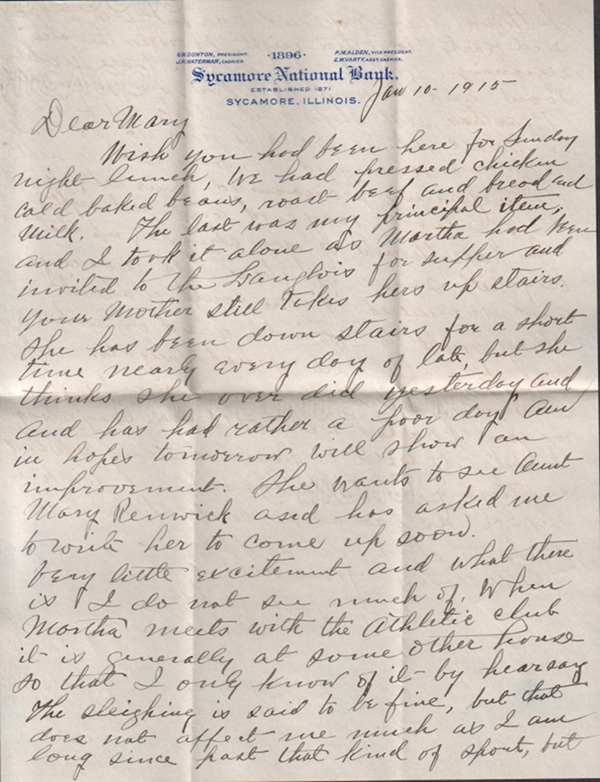 G.W. DUNTON, PRESIDENT.
J.S. WATERMAN, CASHIER.
·1896·
P.M. ALDEN, VICE PRESIDENT.
E.W. VARTY, ASST. CASHIER.
Sycamore National Bank.
ESTABLISHED 1871
SYCAMORE, ILLINOIS.
Jan 10- 1915
Dear Mary
Wish you had been here for Sunday
night lunch, We had pressed chicken
cold baked beans, roast beef and bread and
milk. The last was my principal item,
and I took it alone as Martha had been
invited to the Langlois for supper and
your Mother still takes hers up stairs.
She has been down stairs for a short
time nearly every day of late, but she
thinks she over did yesterday, and
and has had rather a poor day, am
in hopes tomorrow will show an
improvement. She wants to see Aunt
Mary Renwick and has asked me
to write her to come up soon.
Very little excitement and what there
is I do not see much of. When
Martha meets with the Athletic club
it is generally at some other house
so that I only know of it by hearsay
The sleighing is said to be fine, but that
does not affect me much as I am
long since past that kind of sport, but